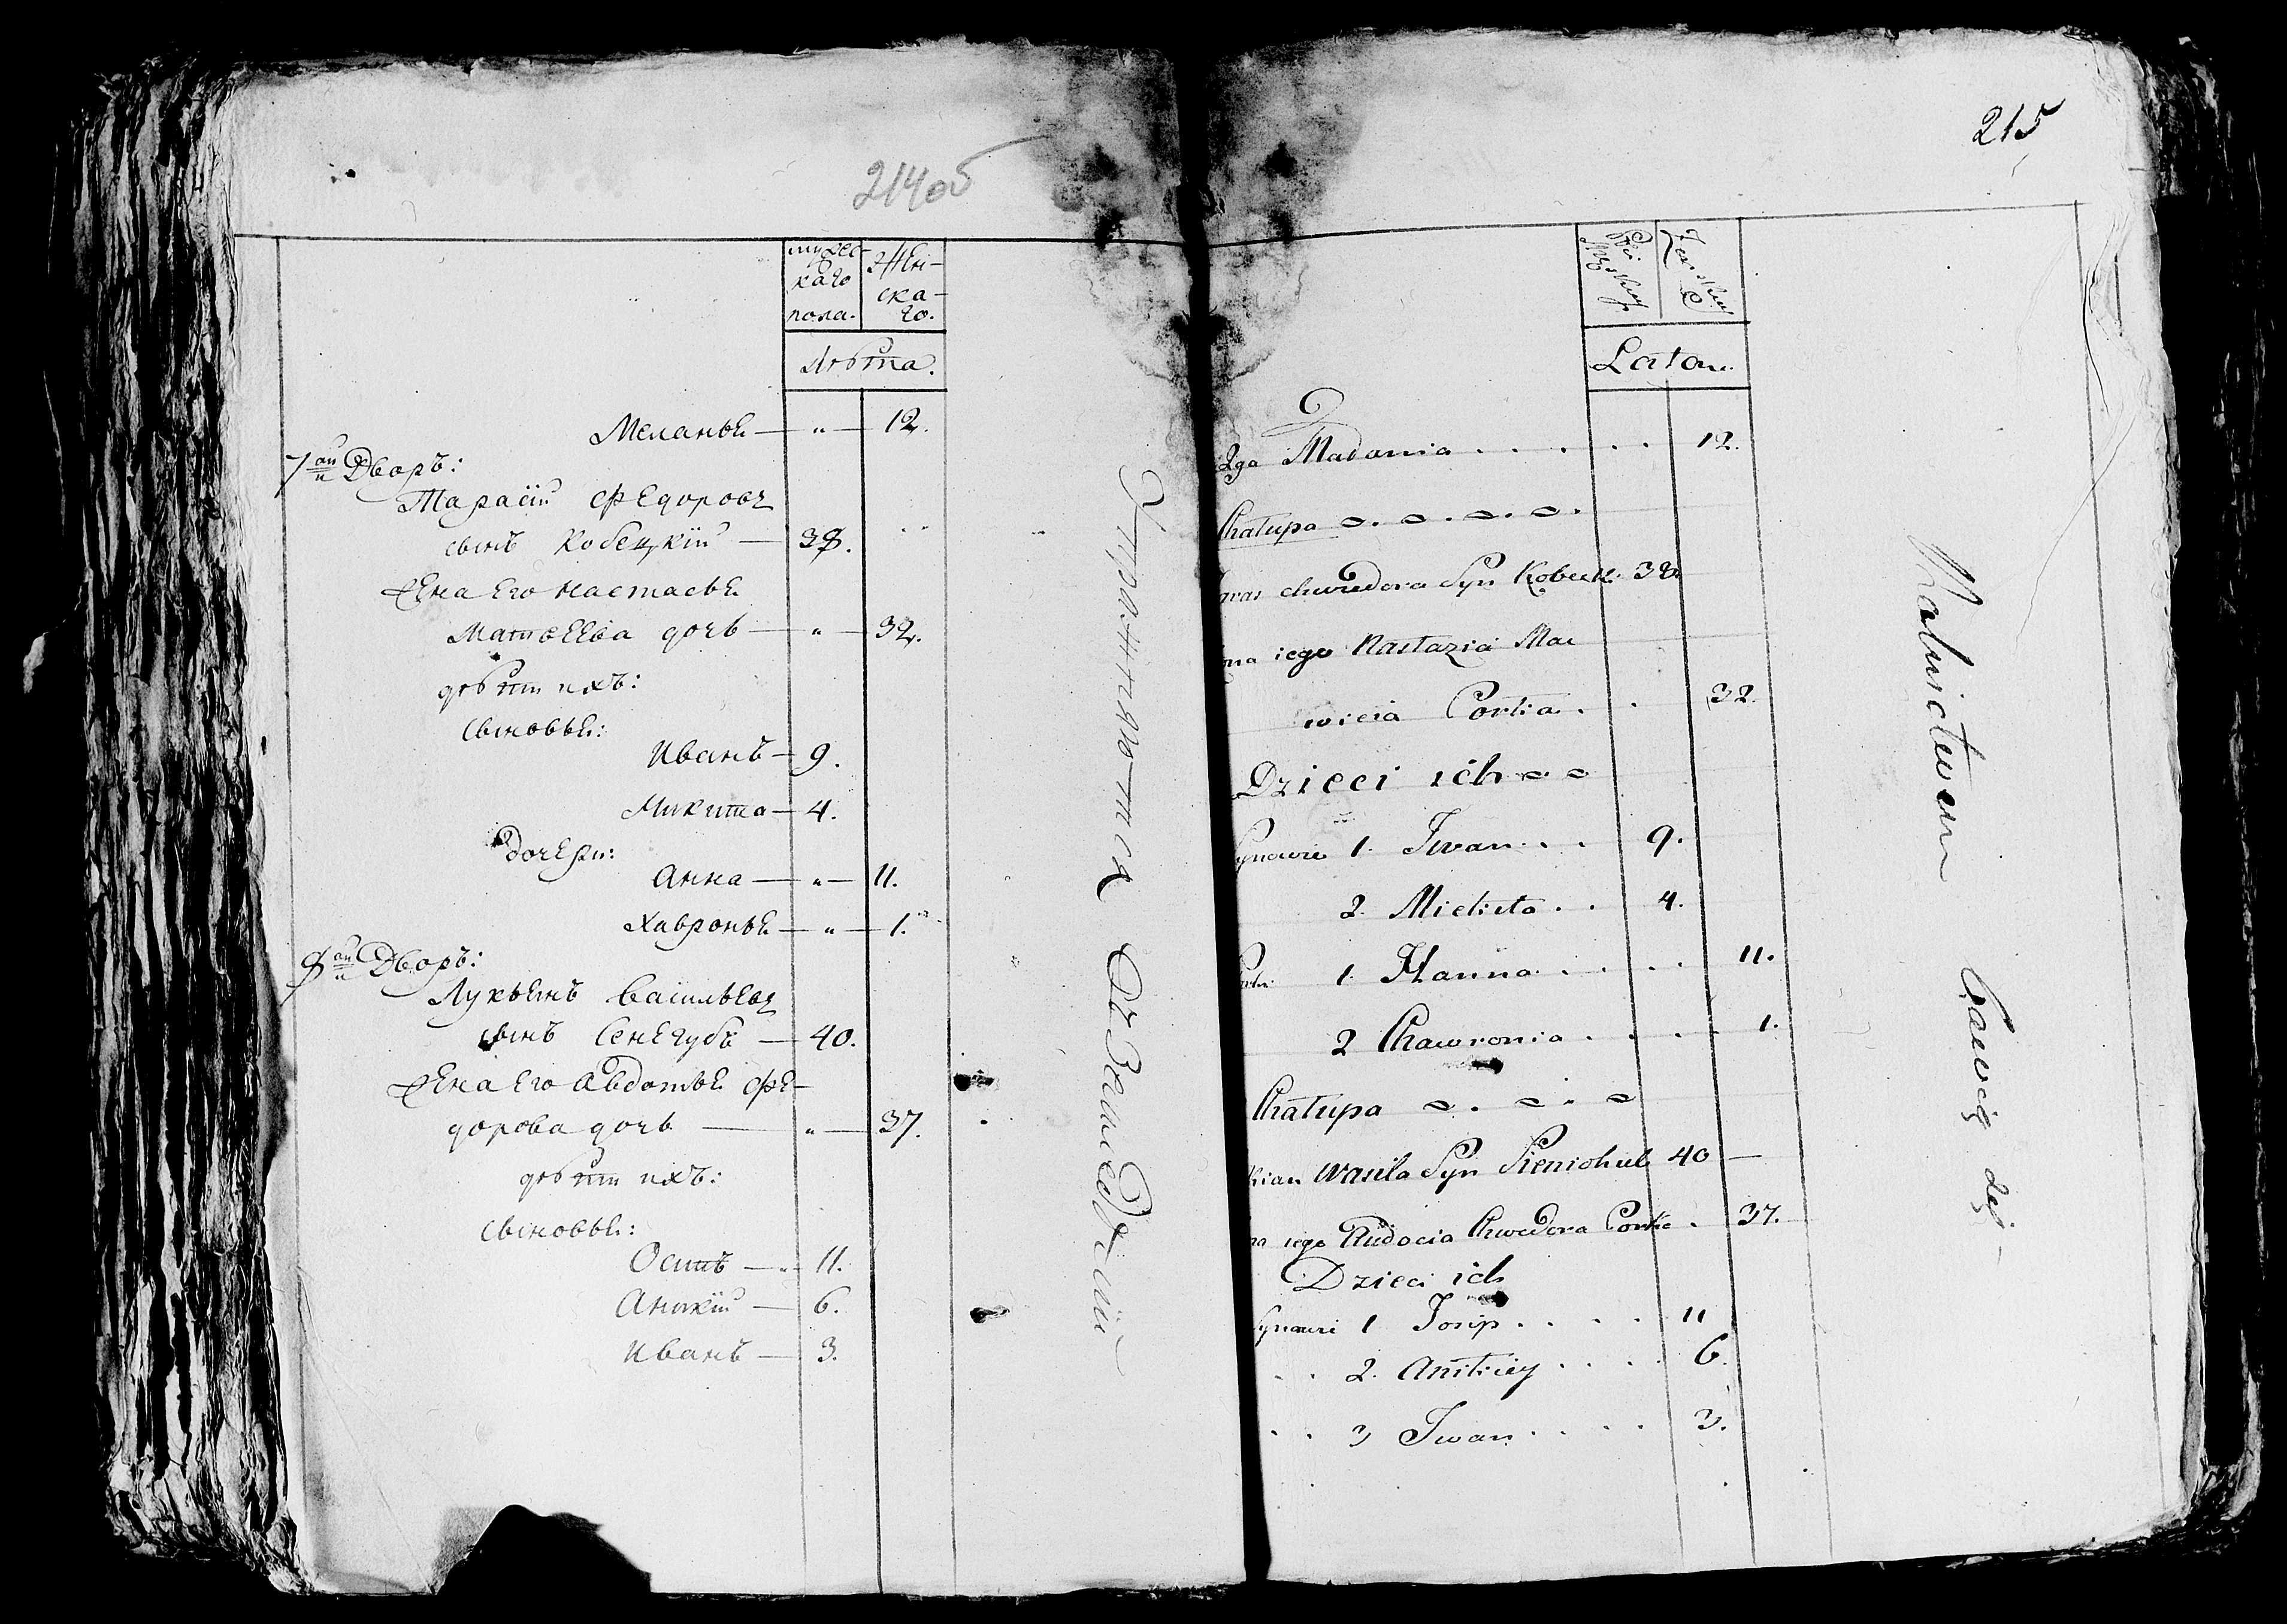 214об
мужес-
каго
пола.
Жен-
ска-
го.
Лѣта.
Меланья — „ — 12.
7ай Дворъ:
Тарасій Федоровъ
сынъ Кобецкій — 38.
Жена Его Настасья
Матвеева дочь — „ — 32.
дѣти ихъ:
Сыновья:
Иванъ — 9.
Микита — 4.
Дочери:
Анна — „ — 11.
Хавронья — „ — 1.
8ай Дворъ:
Лукьянъ Васильевъ
сынъ Сенегубъ — 40.
Жена Его Авдотья Фе-
дорова дочь — „ — 37.
дѣти ихъ:
Сыновья:
Осипъ — „ 11.
Аникій — 6.
Иванъ — 3.
Упражняются въ Земледѣліи
215
Płci
Męskiey
Zenskiey
Latou.
2ga Madania . . . . . 12.
Chatupa
aras Chwedora Syn Kobecki 38.
ona iego Nastazia Mac
wieia Corka . . 32.
Dzieci ich
Synowie 1. Iwan . . 9.
2. Mickita . . 4.
1. Hanna . . . . 11.
2 Chawronia . . . . 1.
Chatupa
kian Wasila Syn Sieniohub 40 —
na iego Audocia Chwedora Corka . 37.
Dzieci ich
Synowie 1 Josip . . . . 11
. . 2. Anikiey . . . . 6.
. . 3 Iwan . . . . 3.